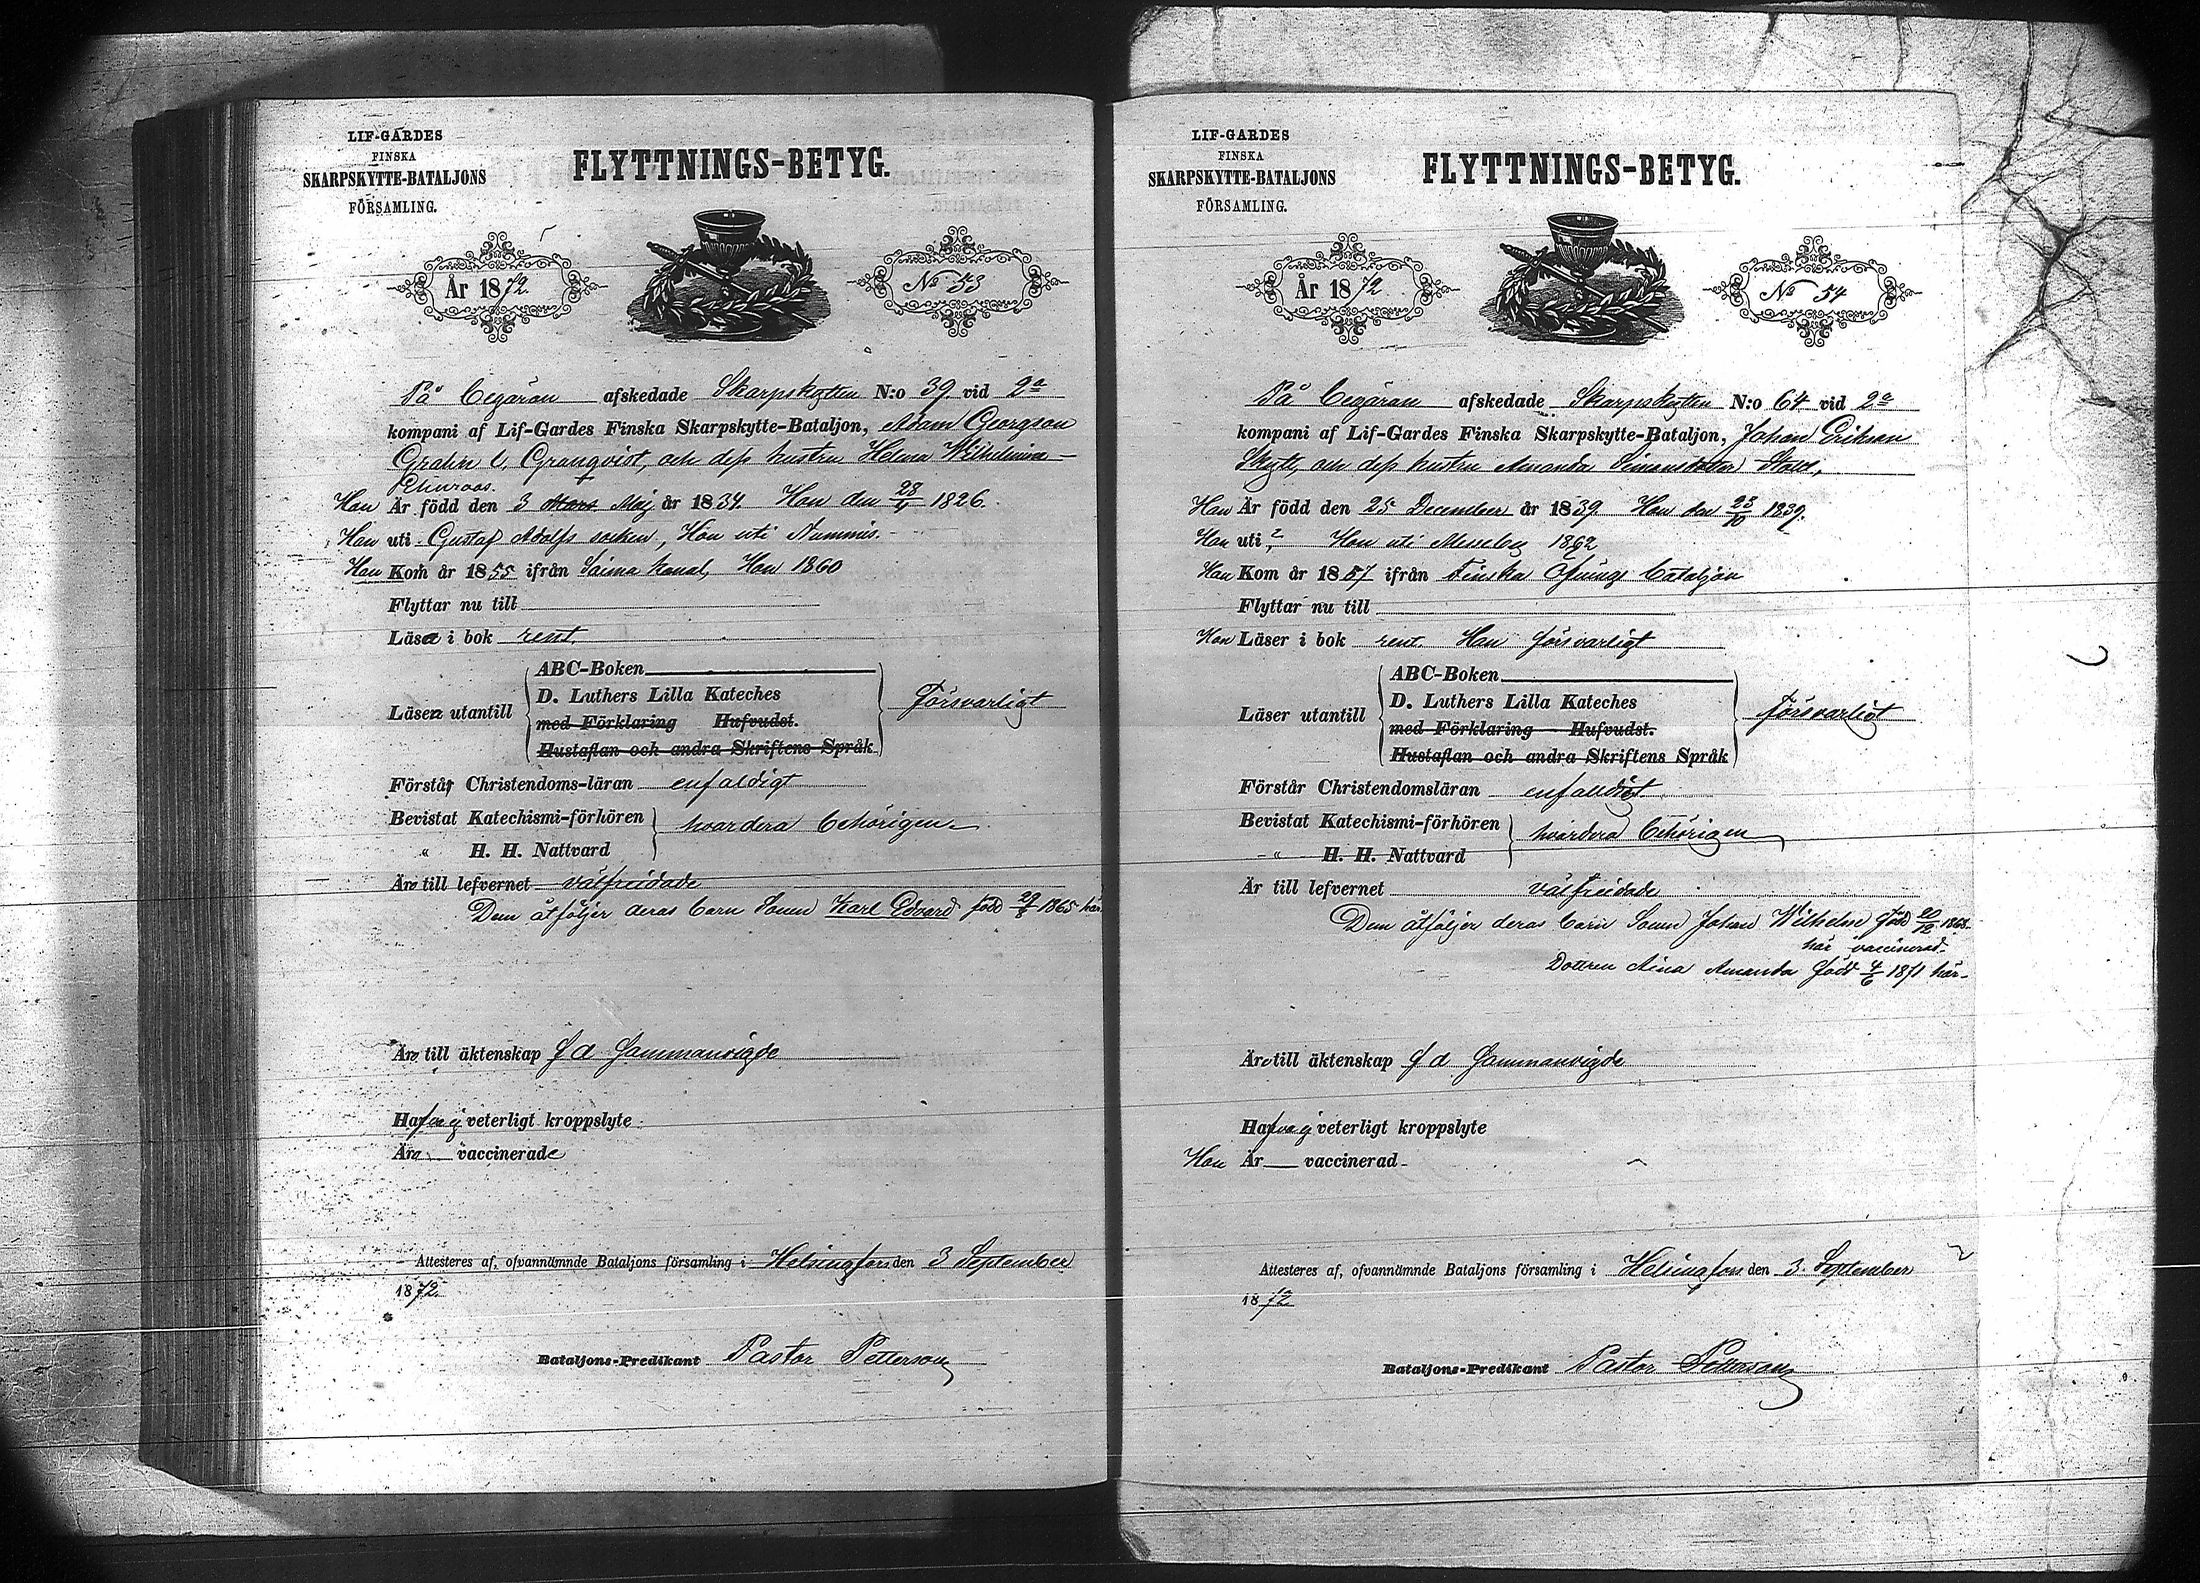 LIF-GARDES
FINSKA
SKARPSKYTTE-BATALJONS
FÖRSAMLING.
FLYTTNINGS-BETYG.
År 1872.
No 53
På begäran afskedade Skarpskytten N:o 39 vid 2a
kompani af Lif-Gardes Finska Skarpskytte-Bataljon, Adam Georgson
Grahn l. Granqvist, och dess hustru Helena Wilhelmina
Han Är född den 3 Mars Maj år 1834. Hon den 28/4 1826.
Han uti Gustaf Adolfs socken, Hon uti Nummis.
Han Kom år 1855 ifrån Saima kanal, Hon 1860
Flyttar nu till
Läsa i bok rent.
Läsa utantill
ABC-Boken
D. Luthers Lilla Kateches
med Förklaring Hufvudst.
Hustaflan och andra Skriftens Språk
Försvarligt
Förstår Christendoms-läran enfaldigt
Bevistat Katechismi-förhören
" H. H. Nattvard
hvardera behörigen
Äro till lefvernet välfrejdade
Dem åtföljer deras barn Sonen Karl Edvard född 1865 här
Äro till äktenskap f d Sammanvigde
Hafva ej veterligt kroppslyte
Äro vaccinerade
Attesteres af, ofvannämnde Bataljons församling i Helsingfors den 3 September
1872.
Bataljons-Predikant Pastor Petterson
LIF-GARDES
FINSKA
SKARPSKYTTE-BATALJONS
FÖRSAMLING.
FLYTTNINGS-BETYG.
År 1872
No 54
På begäran afskedade Skarpskytten N:o 64 vid 2a
kompani af Lif-Gardes Finska Skarpskytte-Bataljon, Johan Erikson
Skytt, och dess hustru Amanda Simonsdotter
Han Är född den 25 December år 1839. Hon den 23/10 1839.
Han uti ? Hon uti Messeby 1862
Han Kom år 1857 ifrån Finska Öfnings bataljon
Flyttar nu till
Han Läser i bok rent. Hon försvarligt
Läser utantill
ABC-Boken
D. Luthers Lilla Kateches
med Förklaring — Hufvudst.
Hustaflan och andra Skriftens Språk
försvarligt
Förstår Christendomsläran enfaldigt
Bevistat Katechismi-förhören
" H. H. Nattvard
hvardera behörigen
Är till lefvernet välfrejdade
Dem åtföljer deras barn Sonen Johan Wilhelm född 20/12
här vaccinerad.
Dottren Aina Amanda född 4/6 1871 här
Äro till äktenskap f d Sammanvigde
Hafva ej veterligt kroppslyte
Hon Är vaccinerad
Attesteres af, ofvannämnde Bataljons församling i Helsingfors den 3 September
1872
Bataljons-Predikant Pastor Petterson